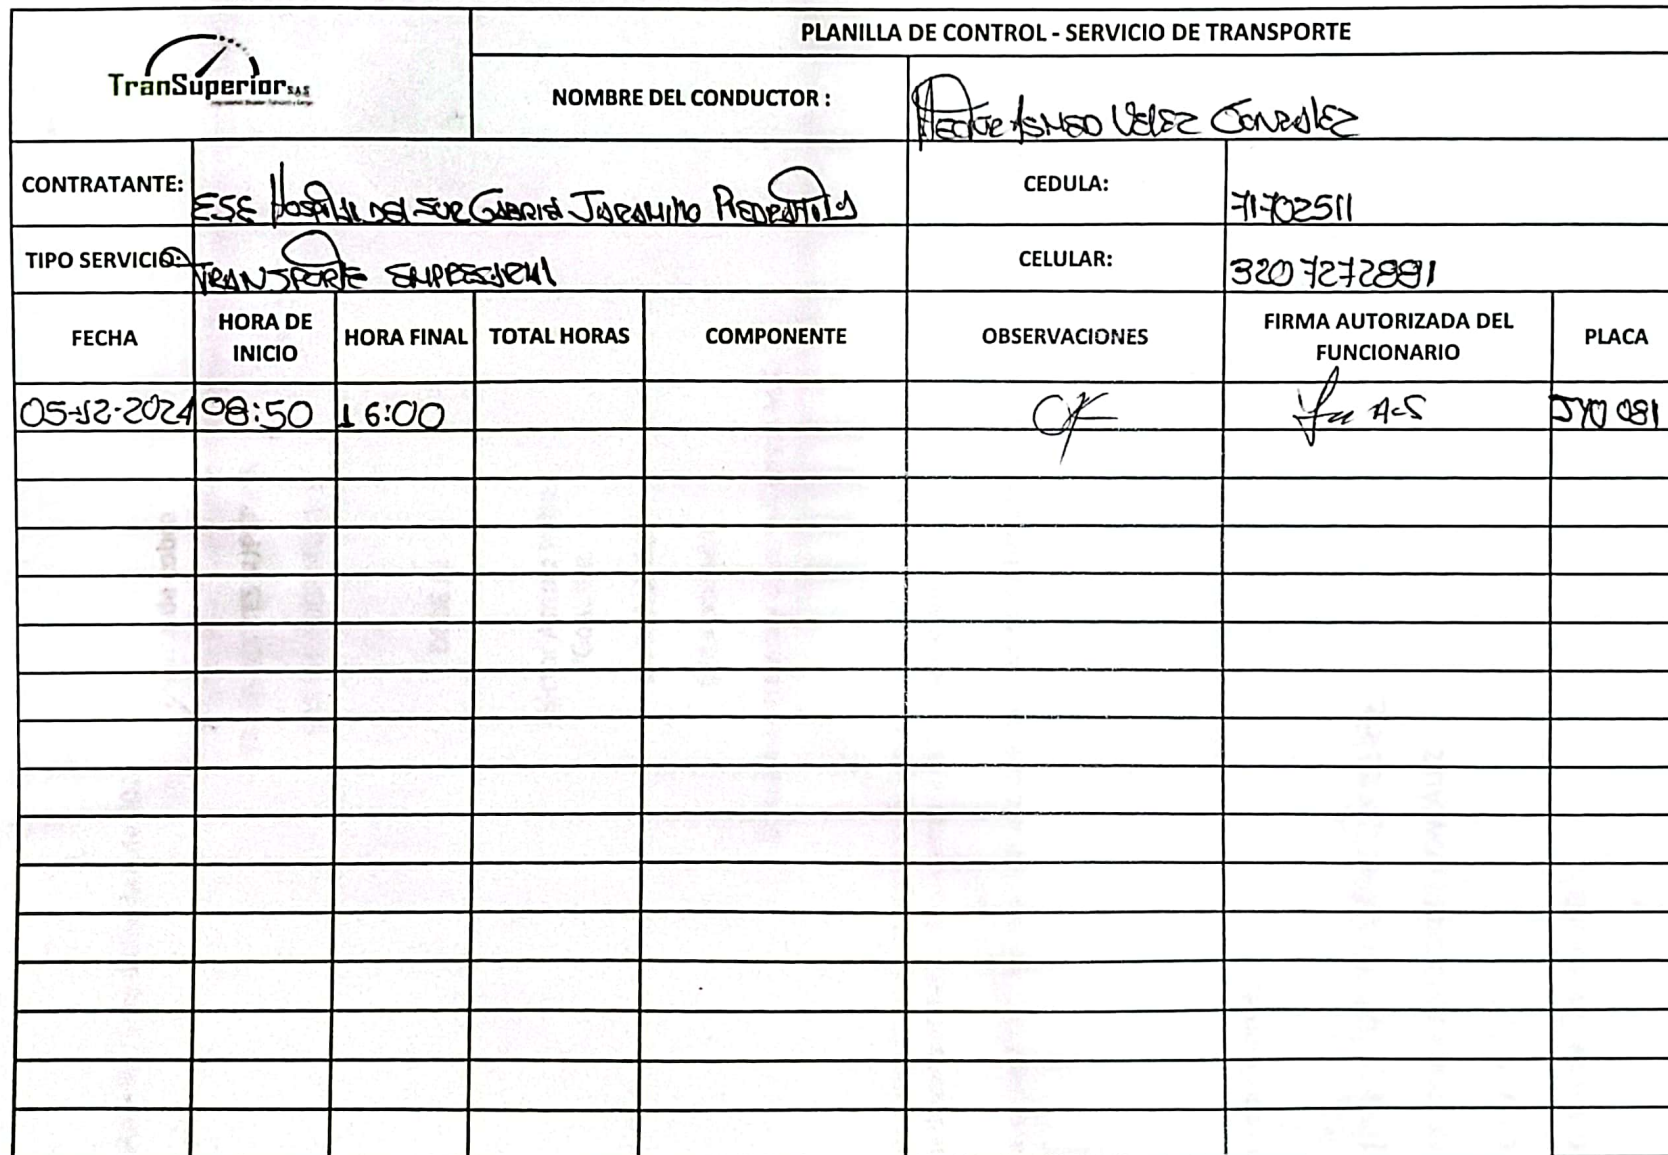 PLANILLA DE CONTROL - SERVICIO DE TRANSPORTE
TranSuperior S.A.S
NOMBRE DEL CONDUCTOR : Velez Gonzalez
CONTRATANTE: ESE Hospital del Sur Gabriel Jaramillo Piedrahita
CEDULA: 71702511
TIPO SERVICIO: TRANSPORTE EMPRESARIAL
CELULAR: 3207272881
FECHA HORA DE INICIO HORA FINAL TOTAL HORAS COMPONENTE OBSERVACIONES FIRMA AUTORIZADA DEL FUNCIONARIO PLACA
05-12-2024 08:50 16:00 OK ACS JYO 081